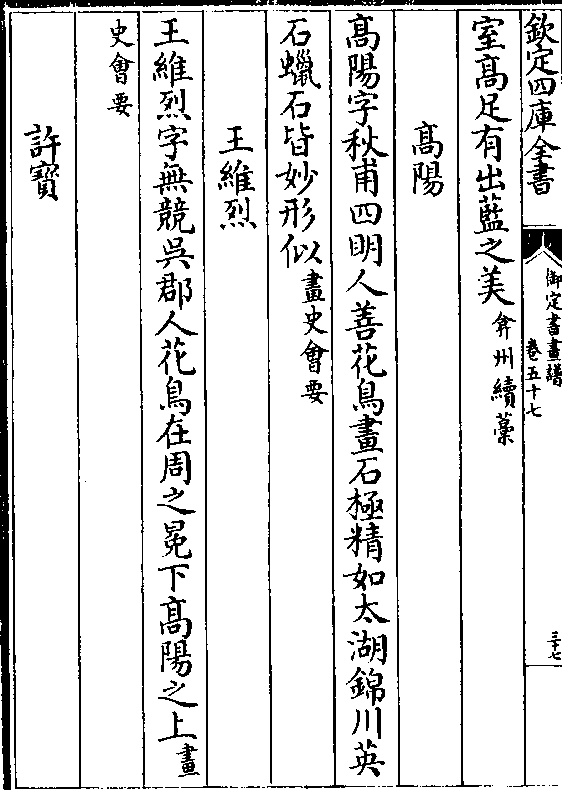 欽定四庫全書
御定書畫譜
卷五十七
三十七
室髙足有出藍之美弇州續藁
髙陽
髙陽字秋甫四明人善花鳥畫石極精如太湖錦川英
石蠟石皆妙形似畫史會要
王維烈
王維烈字無競吳郡人花鳥在周之冕下髙陽之上畫
史會要
許寶